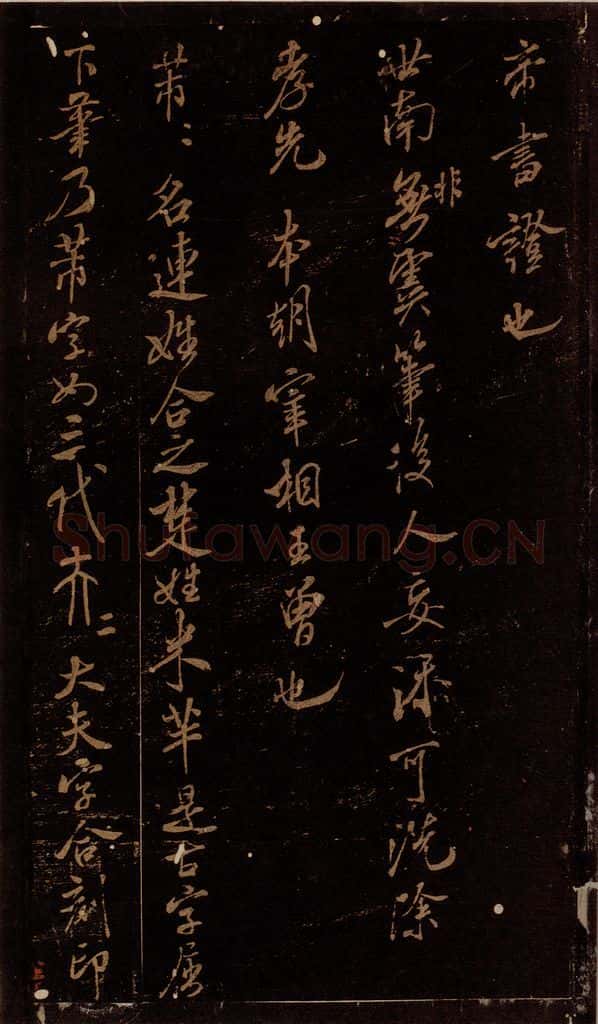 亦書證也
世南無非虞筆後人妄添可洗除
孝先本朝宰相王曾也
芾〻名連姓合之楚姓米芊是古字屬
下筆乃芾字如三代亣二大夫字合刻印
Shufawang.CN